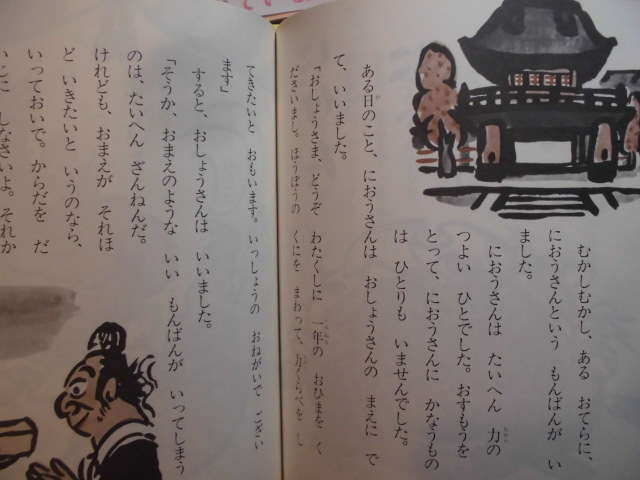 むかしむかし、ある おてらに、
におうさんという もんばんが い
ました。
におうさんは たいへん 力の
つよい ひとでした。おすもうを
とって、におうさんに かなうもの
は ひとりも いませんでした。
ある日のこと、におうさんは おしょうさんの まえに で
て、いいました。
「おしょうさま、どうぞ わたくしに 一年の おひまを く
ださいまし。ほうぼうの くにを まわって、力くらべを し
てきたいと おもいます。いっしょうの おねがいで ござい
ます」
すると、おしょうさんは いいました。
「そうか、おまえのような いい もんばんが いってしまう
のは、たいへん ざんねんだ。
けれども、おまえが それほ
ど いきたいと いうのなら、
いっておいで。からだを だ
しなさいよ。それか